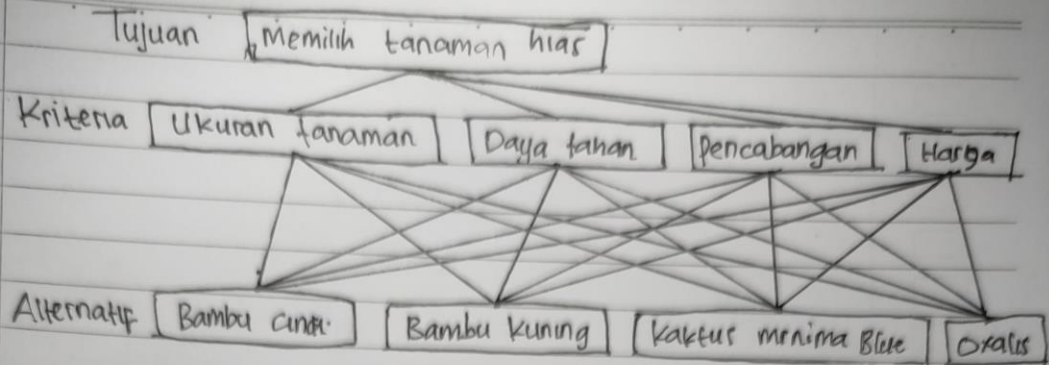 Tujuan Memilih tanaman hias
Kriteria Ukuran tanaman Daya tahan Pencabangan Harga
Alternatif Bambu Kuning Kaktus Oxalis
Bambu